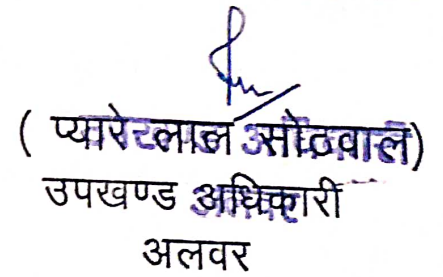 ( प्यारेलाल सोठवाल)
उपखण्ड अधिकारी
अलवर